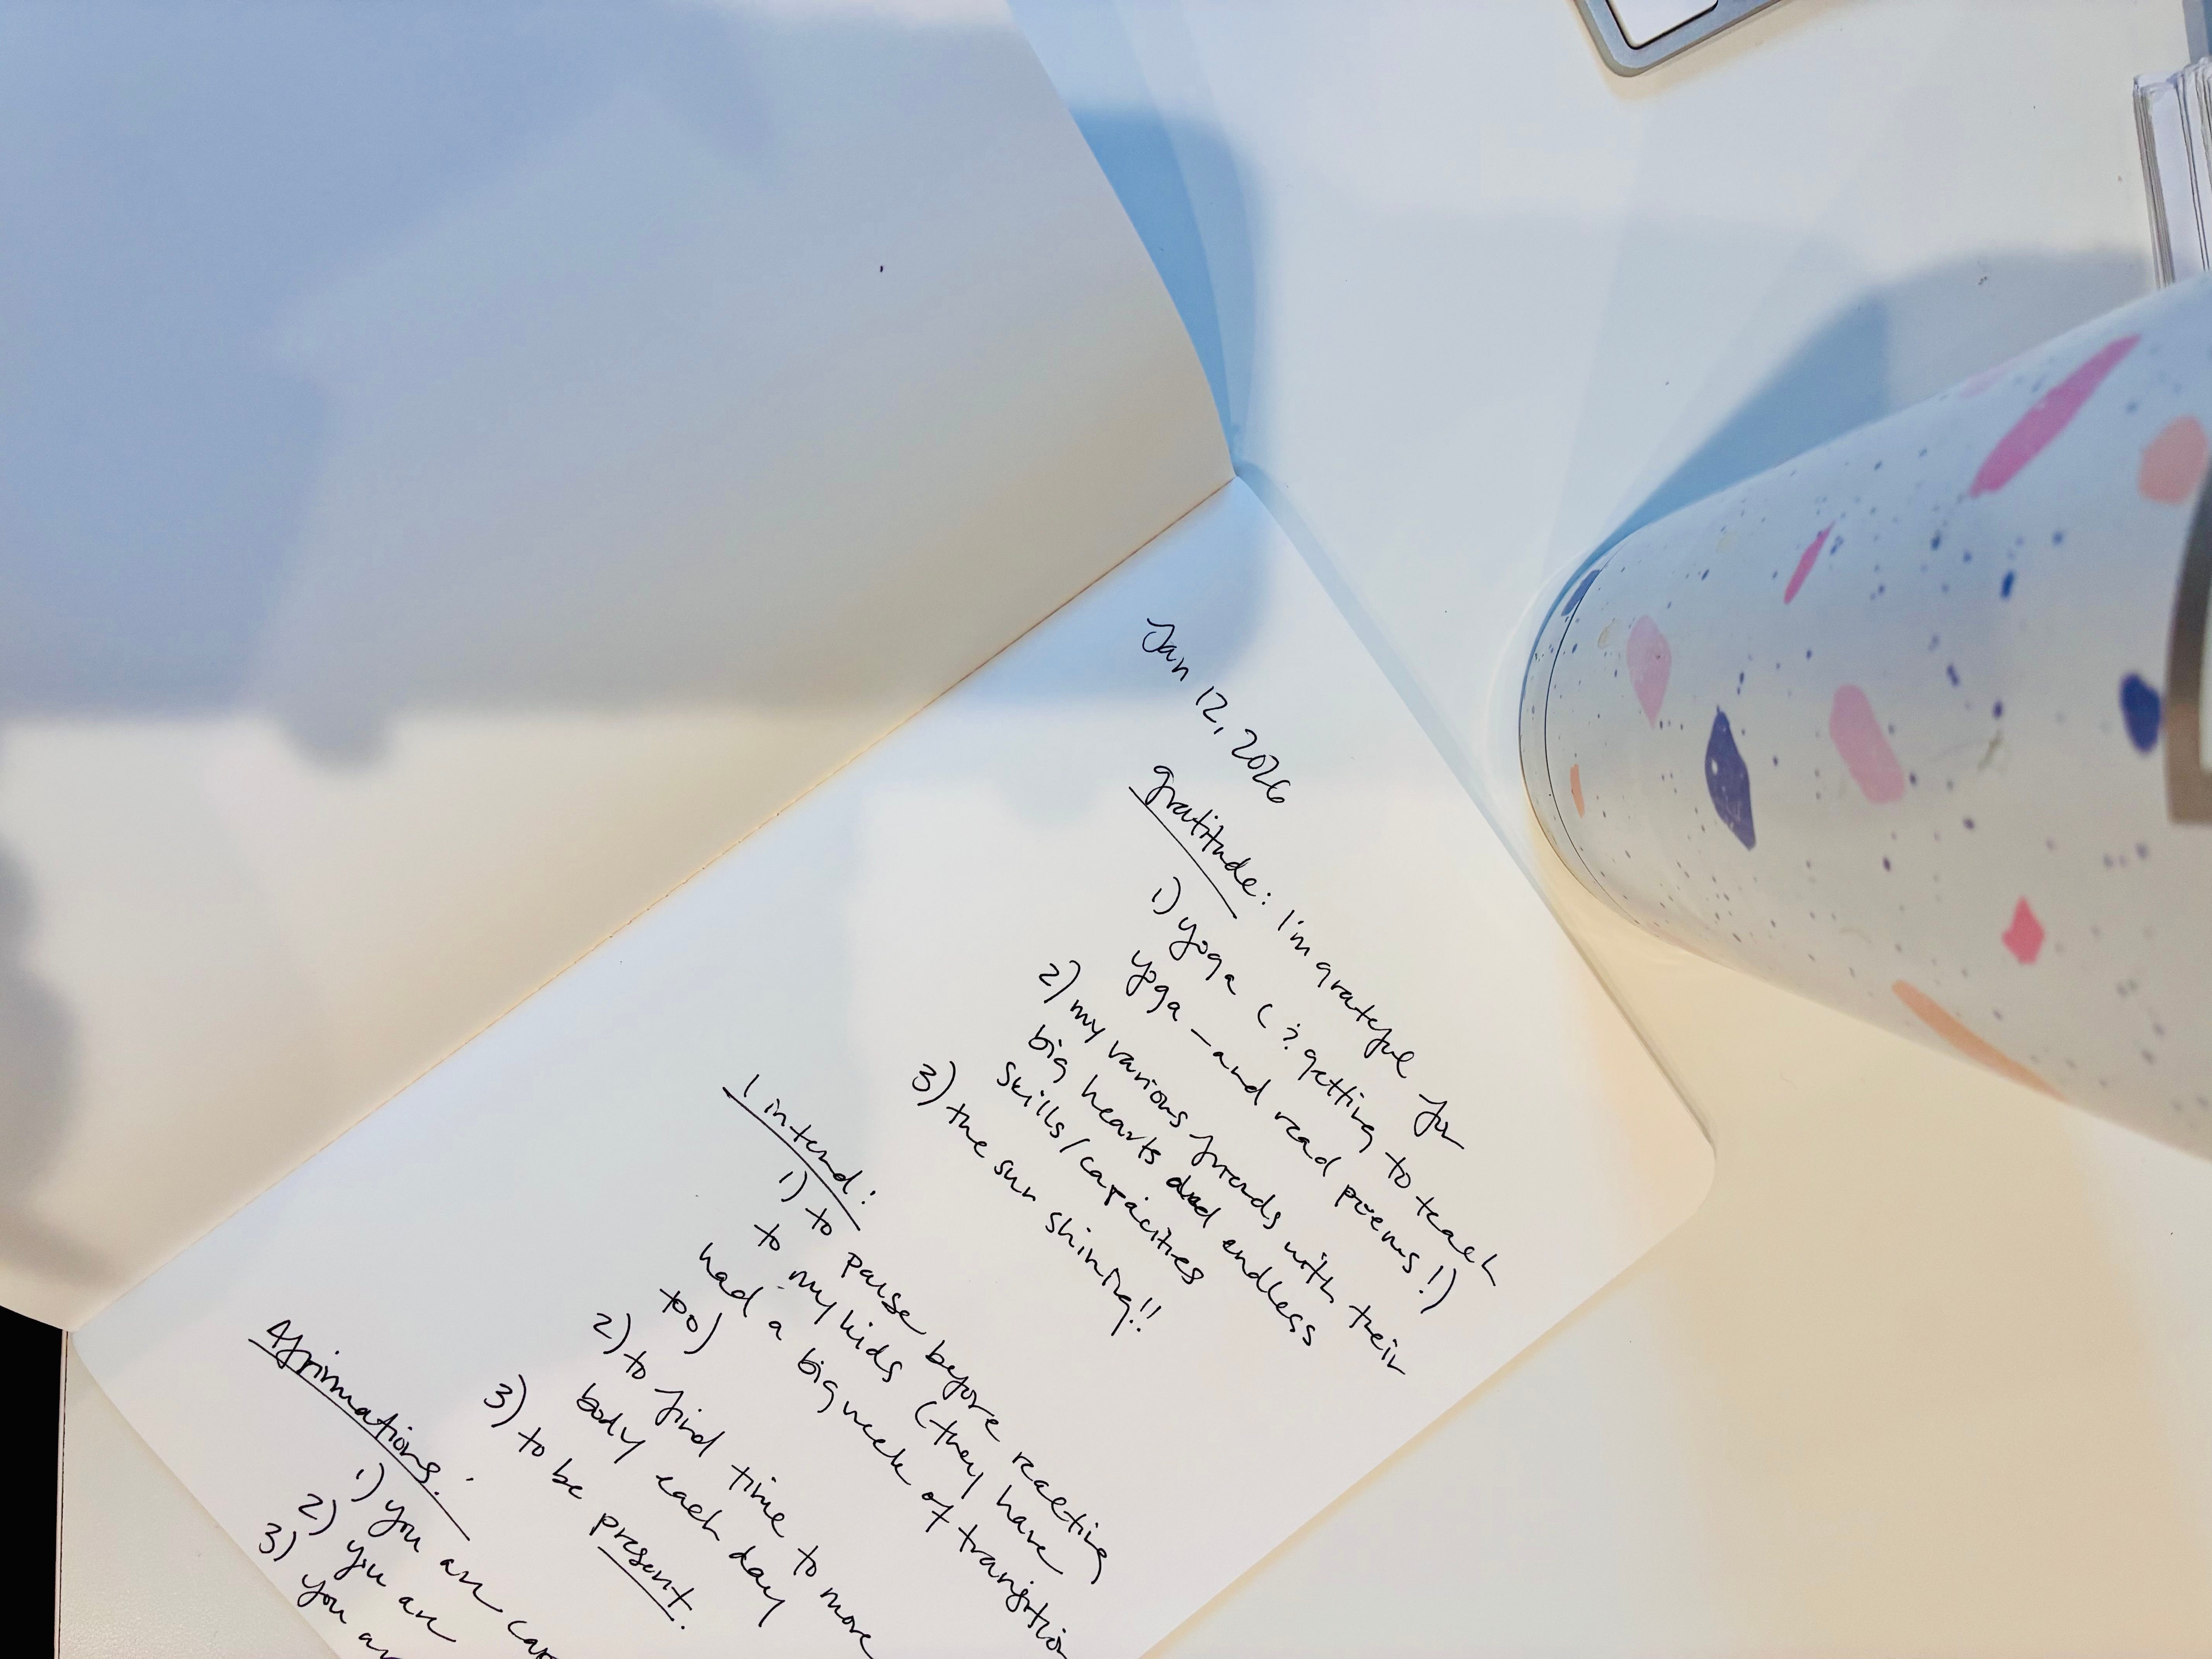 Jan 12, 2026
gratitude: I'm grateful for
1) yoga (& getting to teach
yoga – and read poems!)
2) my various friends with their
big hearts and endless
skills/capacities
3) the sun shining!!
I intend:
1) to pause before reacting
to my kids (they have
had a big week of transition
too)
2) to find time to move
body each day
3) to be present.
Affirmations:
1) you are
2) you are
3) you